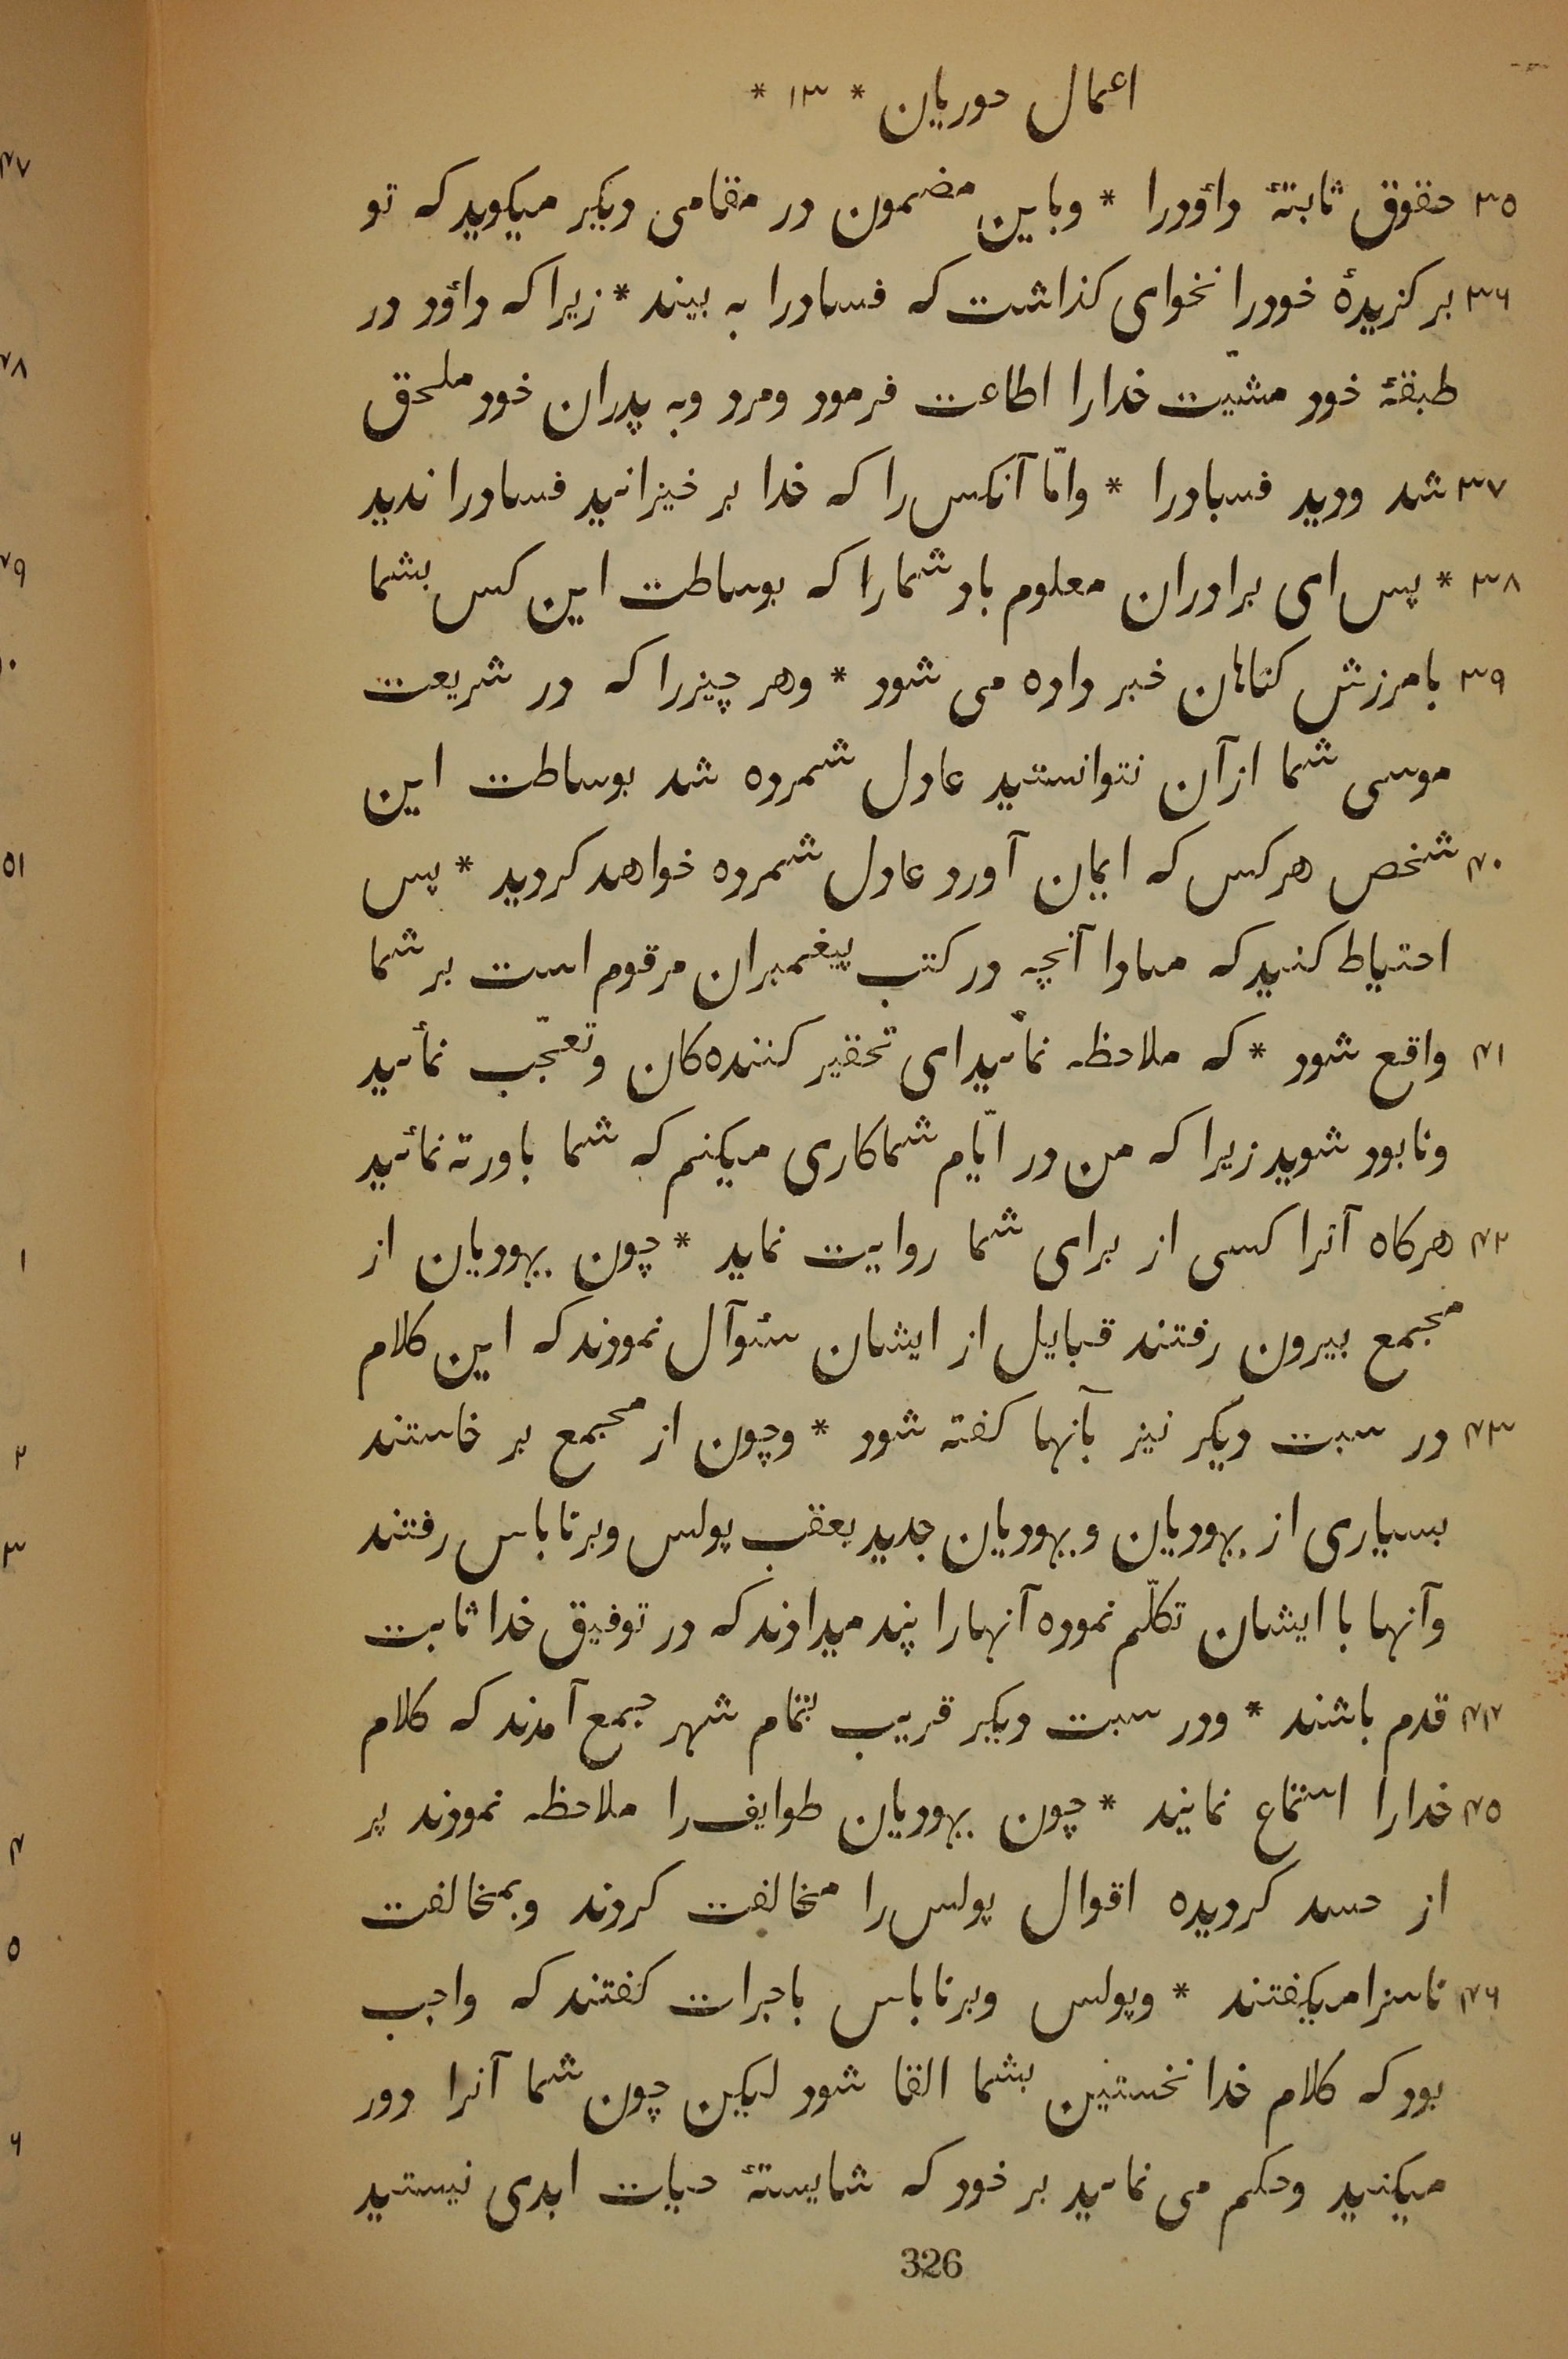 اعمال حوریان * ۱۳ *
۳۵ حقوق ثابتهٔ داؤدرا * وباین مضمون در مقامی دیکر میکوید که تو
۳۶ بر کزیدهٔ خودرا نخوای کذاشت که فسادرا به بیند * زیرا که داؤد در
طبقهٔ خود مشیّت خدارا اطاعت فرمود ومرد وبه پدران خود ملحق
۳۷ شد ودید فسادرا * وامّا آنکس را که خدا بر خیزانید فسادرا ندید
۳۸ * پس ای برادران معلوم باد شمارا که بوساطت این کس بشما
۳۹ بامرزش کناهان خبر داده می شود * وهر چیزرا که در شریعت
موسی شما ازآن نتوانستید عادل شمرده شد بوساطت این
۴۰ شخص هرکس که ایمان آورد عادل شمرده خواهد کردید * پس
احتیاط کنید که مبادا آنچه در کتب پیغمبران مرقوم است بر شما
۴۱ واقع شود * که ملاحظه نمأید ای تحقیر کننده‌کان وتعجّب نمأید
ونابود شوید زیرا که من در ایّام شما کاری میکنم که شما باور نه نمائید
۴۲ هرکاه آنرا کسی از برای شما روایت نماید * چون یهودیان از
مجمع بیرون رفتند قبایل از ایشان سئوآل نمودند که این کلام
۴۳ در سبت دیکر نیز بآنها کفته شود * وچون از مجمع بر خاستند
بسیاری از یهودیان ویهودیان جدید بعقب پولس وبرناباس رفتند
وآنها با ایشان تکلّم نموده آنهارا پند میدادند که در توفیق خدا ثابت
۴۴ قدم باشند * ودر سبت دیکر قریب بتمام شهر جمع آمدند که کلام
۴۵ خدارا استماع نمایند * چون یهودیان طوایف را ملاحظه نمودند پر
از حسد کردیده اقوال پولس را مخالفت کردند وبمخالفت
۴۶ ناسزا میکفتند * وپولس وبرناباس باجرات کفتند که واجب
بود که کلام خدا نخستین بشما القا شود لیکن چون شما آنرا دور
میکنید وحکم می نمایید بر خود که شایستهٔ حیات ابدی نیستید
326
۴۷
۴۸
۴۹
۵۰
۵۱
۱
۲
۳
۴
۵
۶